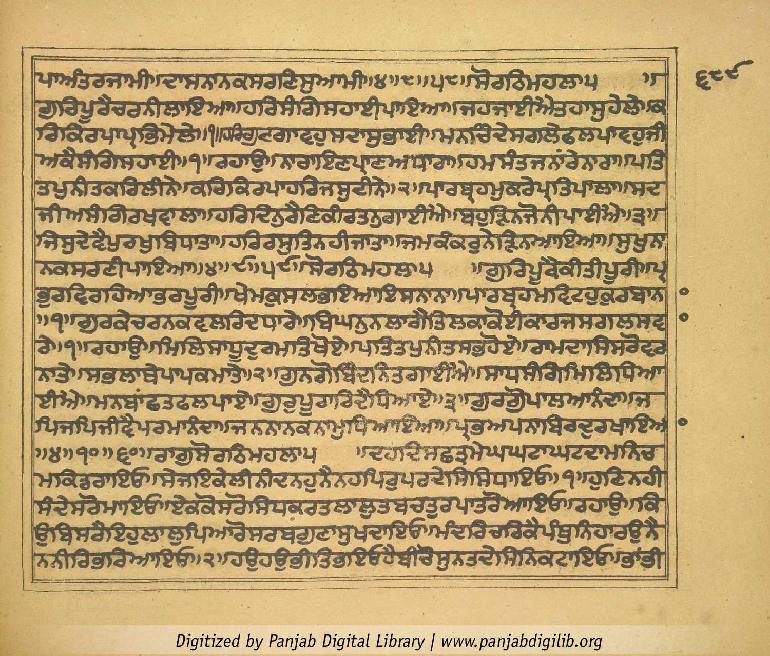 ਪਾਅੰਤਰਜਾਮੀ॥ਦਾਸਨਾਨਕਸਰਣਿਸੁਆਮੀ॥੪॥੮॥੫੮॥ਸੋਰਠਿਮਹਲਾ੫ ॥
੬੮੯
ਗੁਰਿਪੂਰੈਚਰਨੀਲਾਇਆ॥ਹਰਿਸੰਗਿਸਹਾਈਪਾਇਆ॥ਜਹਜਾਈਐਤਹਾਸੁਹੇਲੇ॥ਕ
ਰਿਕਿਰਪਾਪ੍ਰਭਿਮੇਲੇ॥੧॥ਹਰਿਗੁਣਗਾਵਹੁਸਦਾਸੁਭਾਈ॥ਮਨਚਿੰਦੇਸਗਲੇਫਲਪਾਵਹੁਜੀ
ਅਕੈਸੰਗਿਸਹਾਈ॥੧॥ਰਹਾਉ॥ਨਾਰਾਇਣਪ੍ਰਾਣਅਧਾਰਾ॥ਹਮਸੰਤਜਨਾਂਰੇਨਾਰਾ॥ਪਤਿ
ਤਪੁਨੀਤਕਰਿਲੀਨੇ॥ਕਰਿਕਿਰਪਾਹਰਿਜਸੁਦੀਨੇ॥੨॥ਪਾਰਬ੍ਰਹਮੁਕਰੇਪ੍ਰਤਿਪਾਲਾ॥ਸਦ
ਜੀਅਸੰਗਿਰਖਵਾਲਾ॥ਹਰਿਦਿਨੁਰੈਣਿਕੀਰਤਨੁਗਾਈਐ॥ਬਹੁੜਿਨਜੋਨੀਪਾਈਐ॥੩॥
ਜਿਸੁਦੇਵੈਪੁਰਖੁਬਿਧਾਤਾ॥ਹਰਿਰਸੁਤਿਨਹੀਜਾਤਾ॥ਜਮਕੰਕਰੁਨੇੜਿਨਆਇਆ॥ਸੁਖੁਨਾ
ਨਕਸਰਣੀਪਾਇਆ॥੪॥੯॥੫੯॥ਸੋਰਠਿਮਹਲਾ੫ ॥ਗੁਰਿਪੂਰੈਕੀਤੀਪੂਰੀ॥ਪ੍ਰ
ਭੁਰਵਿਰਹਿਆਭਰਪੂਰੀ॥ਖੇਮਕੁਸਲਭਇਆਇਸਨਾਨਾ॥ਪਾਰਬ੍ਰਹਮਵਿਟਹੁਕੁਰਬਾਨਾ
॥੧॥ਗੁਰਕੇਚਰਨਕਵਲਰਿਦਧਾਰੇ॥ਬਿਘਨੁਨਲਾਗੈਤਿਲਕਾਕੋਈਕਾਰਜਸਗਲਸਵਾ
ਰੇ॥੧॥ਰਹਾਉ॥ਮਿਲਿਸਾਧੂਦੁਰਮਤਿਖੋਏ॥ਪਤਿਤਪੁਨੀਤਸਭਹੋਏ॥ਰਾਮਦਾਸਿਸਰੋਵਰ
ਨਾਤੇ॥ਸਭਲਾਥੇਪਾਪਕਮਾਤੇ॥੨॥ਗੁਨਗੋਬਿੰਦਨਿਤਗਾਈਐ॥ਸਾਧਸੰਗਿਮਿਲਿਧਿਆ
ਈਐ॥ਮਨਬਾਂਛਤਫਲਪਾਏ॥ਗੁਰੁਪੂਰਾਰਿਦੈਧਿਆਏ॥੩॥ਗੁਰਗੋਪਾਲਆਨੰਦਾ॥ਜ
ਪਿਜਪਿਜੀਵੈਪਰਮਾਨੰਦਾ॥ਜਨਨਾਨਕਨਾਮੁਧਿਆਇਆ॥ਪ੍ਰਭਅਪਨਾਬਿਰਦੁਰਖਾਇਆ
॥੪॥੧੦॥੬੦॥ਰਾਗੁਸੋਰਠਿਮਹਲਾ੫ ॥ਦਹਦਿਸਛਤ੍ਰਮੇਘਘਟਾਘਟਦਾਮਨਿਚ
ਮਕਿਡਰਾਇਓ॥ਸੇਜਇਕੇਲੀਨੀਦਨਹੁਨੈਨਹਪਿਰੁਪਰਦੇਸਿਸਿਧਾਇਓ॥੧॥ਹੁਣਿਨਹੀ
ਸੰਦੇਸਰੋਮਾਇਓ॥ਏਕਕੋਸਰੋਸਿਧਿਕਰਤਲਾਲੁਤਬਚਤੁਰਪਾਤਰੋਆਇਓ॥ਰਹਾਉ॥ਕਿ
ਉਬਿਸਰੈਇਹੁਲਾਲੁਪਿਆਰੋਸਰਬਗੁਣਾਸੁਖਦਾਇਓ॥ਮੰਦਰਿਚਰਿਕੈਪੰਥੁਨਿਹਾਰਉਨੈ
ਨਨੀਰਿਭਰਿਆਇਓ॥੨॥ਹਉਹਉਭੀਤਿਭਇਓਹੈਬੀਚੋਸੁਨਤਦੇਸਿਨਿਕਟਾਇਓ॥ਭਾਂਭੀ
Digitized by Panjab Digital Library | www.panjabdigilib.org